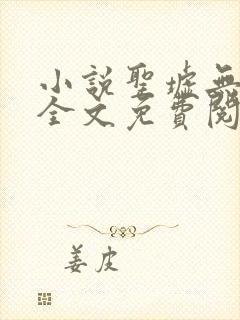 小說聖墟無
全文免費閱
姜皮